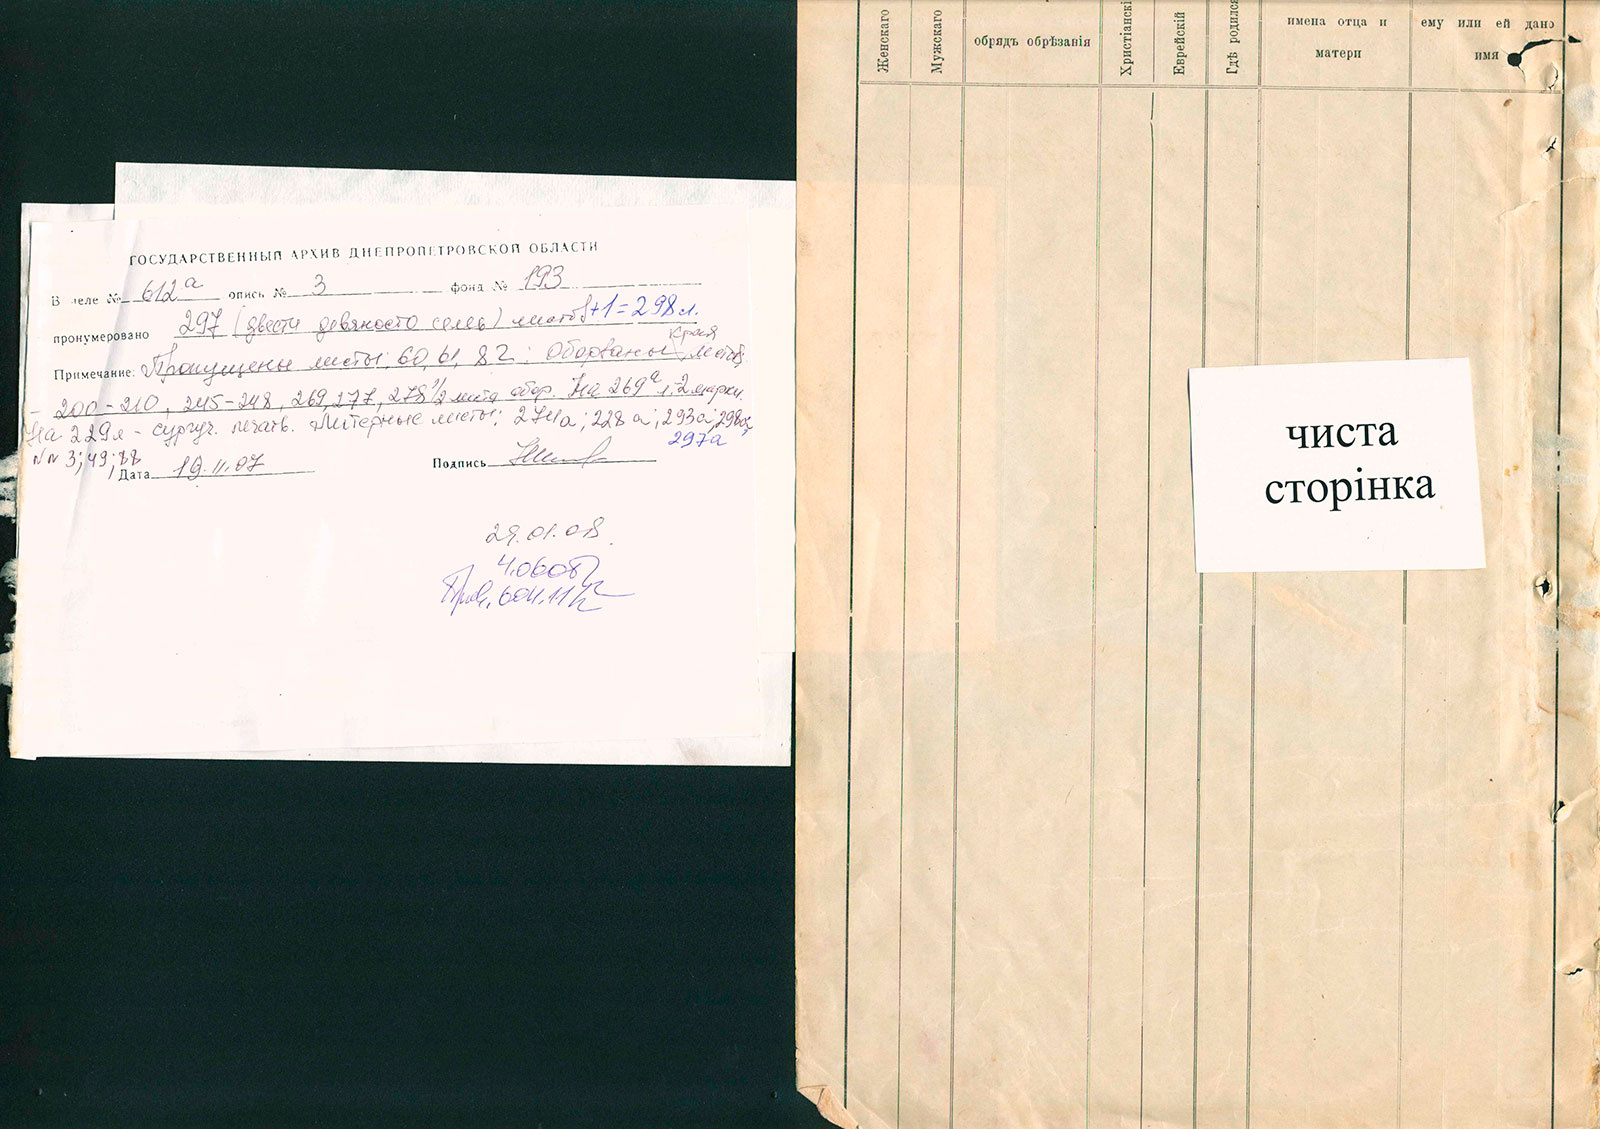 ГОСУДАРСТВЕННЫЙ АРХИВ ДНЕПРОПЕТРОВСКОЙ ОБЛАСТИ
В деле № 612а опись № 3 фонд № 193
пронумеровано 297 (двести девяносто семь) листов +1=298л.
края
Примечание: Пропущены листы: 60, 61, 82; оборваны листов:
- 200-210, 245-248, 269, 277, 278 1/2 листа обор. На 269а л. 2 марки.
На 229л - сургуч. печать. Литерные листы: 274а; 228а; 293а; 298а;
297а
№№ 3; 49; 88
Дата 19.11.07 Подпись
29.01.08
Женскаго
Мужскаго
обрядъ обрѣзанія
Христіанскі
Еврейскій
Гдѣ родился
имена отца и
матери
ему или ей дано
имя
чиста
сторінка